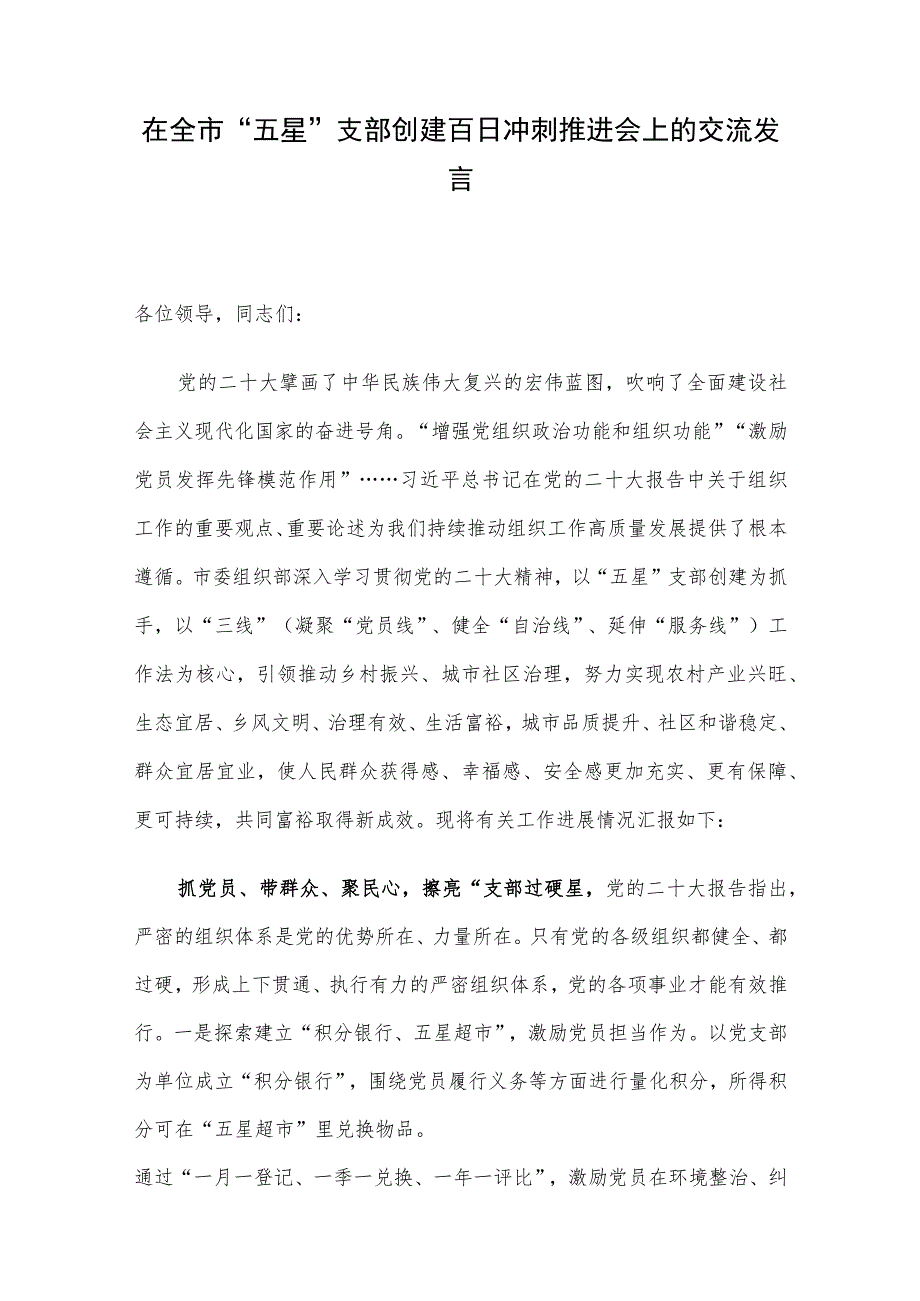 在全市“五星”支部创建百日冲刺推进会上的交流发
言
各位领导，同志们：
党的二十大擘画了中华民族伟大复兴的宏伟蓝图，吹响了全面建设社
会主义现代化国家的奋进号角。“增强党组织政治功能和组织功能”“激励
党员发挥先锋模范作用”……习近平总书记在党的二十大报告中关于组织
工作的重要观点、重要论述为我们持续推动组织工作高质量发展提供了根本
遵循。市委组织部深入学习贯彻党的二十大精神，以“五星”支部创建为抓
手，以“三线”（凝聚“党员线”、健全“自治线”、延伸“服务线”）工
作法为核心，引领推动乡村振兴、城市社区治理，努力实现农村产业兴旺、
生态宜居、乡风文明、治理有效、生活富裕，城市品质提升、社区和谐稳定、
群众宜居宜业，使人民群众获得感、幸福感、安全感更加充实、更有保障、
更可持续，共同富裕取得新成效。现将有关工作进展情况汇报如下：
抓党员、带群众、聚民心，擦亮“支部过硬星，党的二十大报告指出，
严密的组织体系是党的优势所在、力量所在。只有党的各级组织都健全、都
过硬，形成上下贯通、执行有力的严密组织体系，党的各项事业才能有效推
行。一是探索建立“积分银行、五星超市”，激励党员担当作为。以党支部
为单位成立“积分银行”，围绕党员履行义务等方面进行量化积分，所得积
分可在“五星超市”里兑换物品。
通过“一月一登记、一季一兑换、一年一评比”，激励党员在环境整治、纠